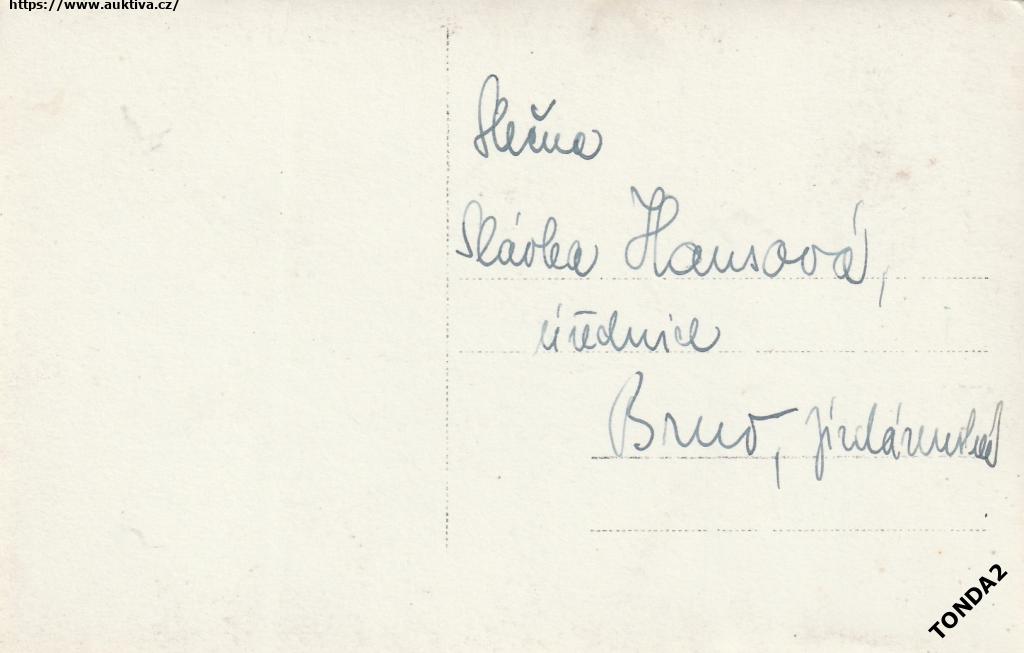 https://www.auktiva.cz/
Slečna
Slávka Hansová,
úřednice
Brno, Jízdárenská
TONDA2